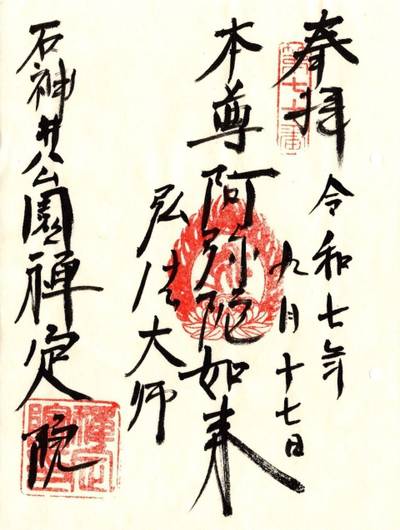 奉拝
令和七年
九月十七日
本尊阿弥陀如来
弘法大師
石神井公園禅定院